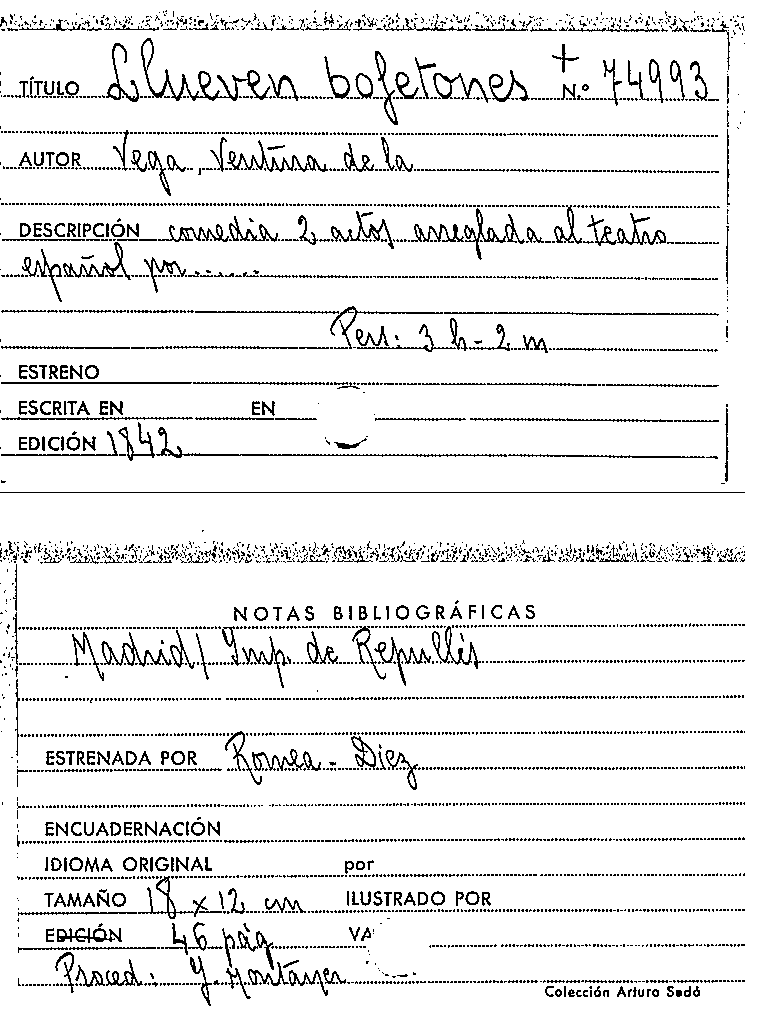 TÍTULO Llueven bofetones + N.º 74993
AUTOR Vega, Ventura de la
DESCRIPCIÓN comedia 2 actos arreglada al teatro
español por......
Pers: 3 h - 2 m
ESTRENO
ESCRITA EN EN
EDICIÓN 1842
NOTAS BIBLIOGRÁFICAS
Madrid / Imp. de Repullés
ESTRENADA POR Romea - Diez
ENCUADERNACIÓN
IDIOMA ORIGINAL por
TAMAÑO 18 x 12 cm ILUSTRADO POR
EDICIÓN 46 pág VA
Proced: Y. Montaner
Colección Arturo Sedó